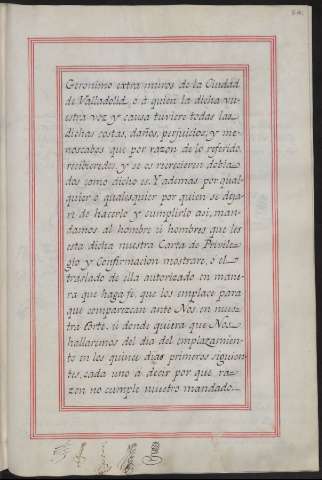 Geronimo extra muros de la Ciudad
de Valladolid, o à quien la dicha vu-
estra voz y causa tuviere todas las
dichas costas, daños, perjuicios, y me-
noscabos que por razon de lo referido,
recibieredes, y se os recrecieren dobla-
dos como dicho es. Y ademas por qual-
quier ò qualesquier por quien se deja-
re de hacerlo y cumplirlo asi, man-
damos al hombre ù hombres que les
esta dicha nuestra Carta de Privile-
gio y Confirmacion mostrare, ò el
traslado de ella autorizado en mane-
ra que haga fé, que los emplace para
que comparezcan ante Nos en nues-
tra Corte, ù donde quiera que Nos
hallaremos del dia del emplazamien-
to en los quince dias primeros siguien-
tes, cada uno à decir por que ra-
zon no cumple nuestro mandado.